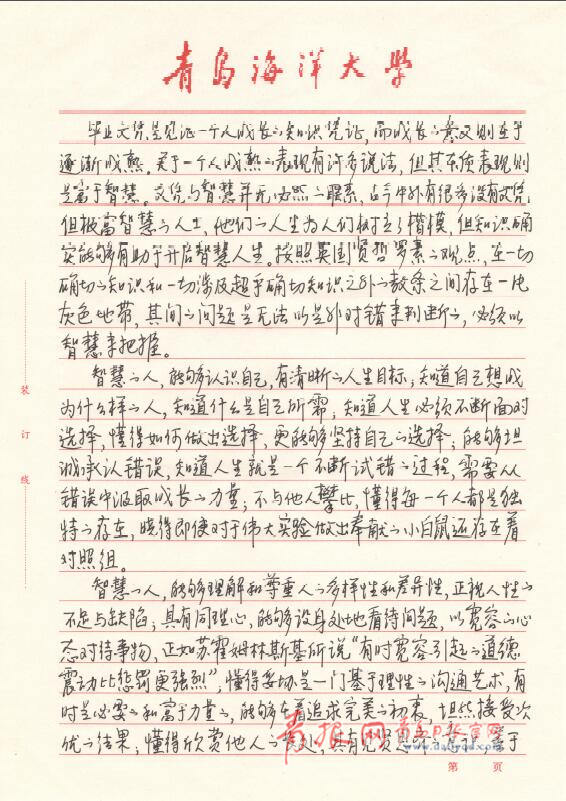 青岛海洋大学
毕业文凭是见证一个人成长的知识凭证，而成长的意义则在于
逐渐成熟。关于一个人成熟的表现有许多说法，但其本质表现则
是富于智慧。文凭与智慧并无必然的联系，古今中外有很多没有文凭
但极富智慧的人生，他们的人生为人们树立了楷模，但知识确
实能够有助于开启智慧人生。按照英国贤哲罗素的观点，在一切
确切的知识和一切涉及超乎确切知识之外的教条之间存在一片
灰色地带，其间的问题是无法以是非对错来判断的，必须以
智慧来把握。
智慧的人，能够认识自己，有清晰的人生目标；知道自己想成
为什么样的人，知道什么是自己所需，知道人生必须不断面对
选择，懂得如何做出选择，更能够坚持自己的选择；能够坦
诚承认错误，知道人生就是一个不断试错的过程，需要从
错误中汲取成长的力量；不与他人攀比，懂得每一个人都是独
特的存在，晓得即使对于伟大实验做出奉献的小白鼠还存在着
对照组。
智慧的人，能够理解和尊重人的多样性和差异性，正视人性的
不足与缺陷；具有同理心，能够设身处地看待问题，以宽容的心
态对待事物，正如苏霍姆林斯基所说“有时宽容引起的道德
震动比惩罚更强烈”；懂得妥协是一门基于理性的沟通艺术，有
时是必要的和富于力量的，能够在着追求完美的初衷，坦然接受次
优的结果；懂得欣赏他人的长处，具有见贤思齐的，善于
装
订
线
青报网
青岛日报官网
www.dailyqd.com
第 页